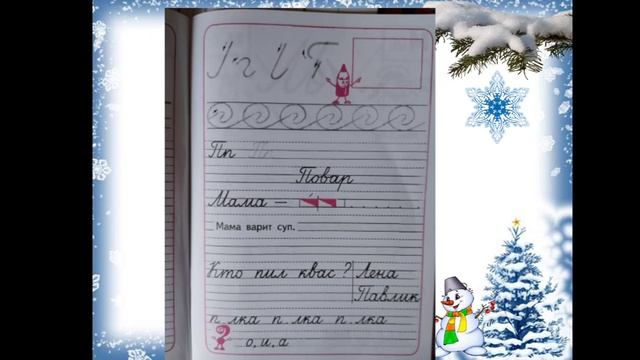 Пп Пп
Повар
Мама —
Мама варит суп.
Кто пил квас? Лена
Павлик
п..лка п..лка п..лка
о, и, а